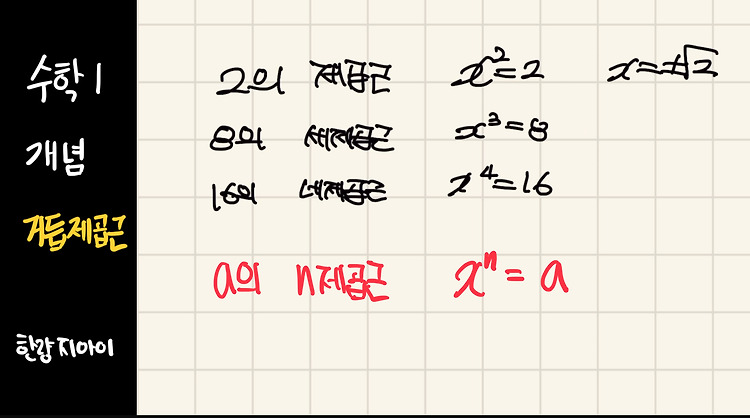 수학 1
개념
거듭제곱근
한람지아이
2의 제곱근 x²=2 x=±√2
8의 세제곱근 x³=8
16의 네제곱근 x⁴=16
a의 n제곱근 xⁿ=a